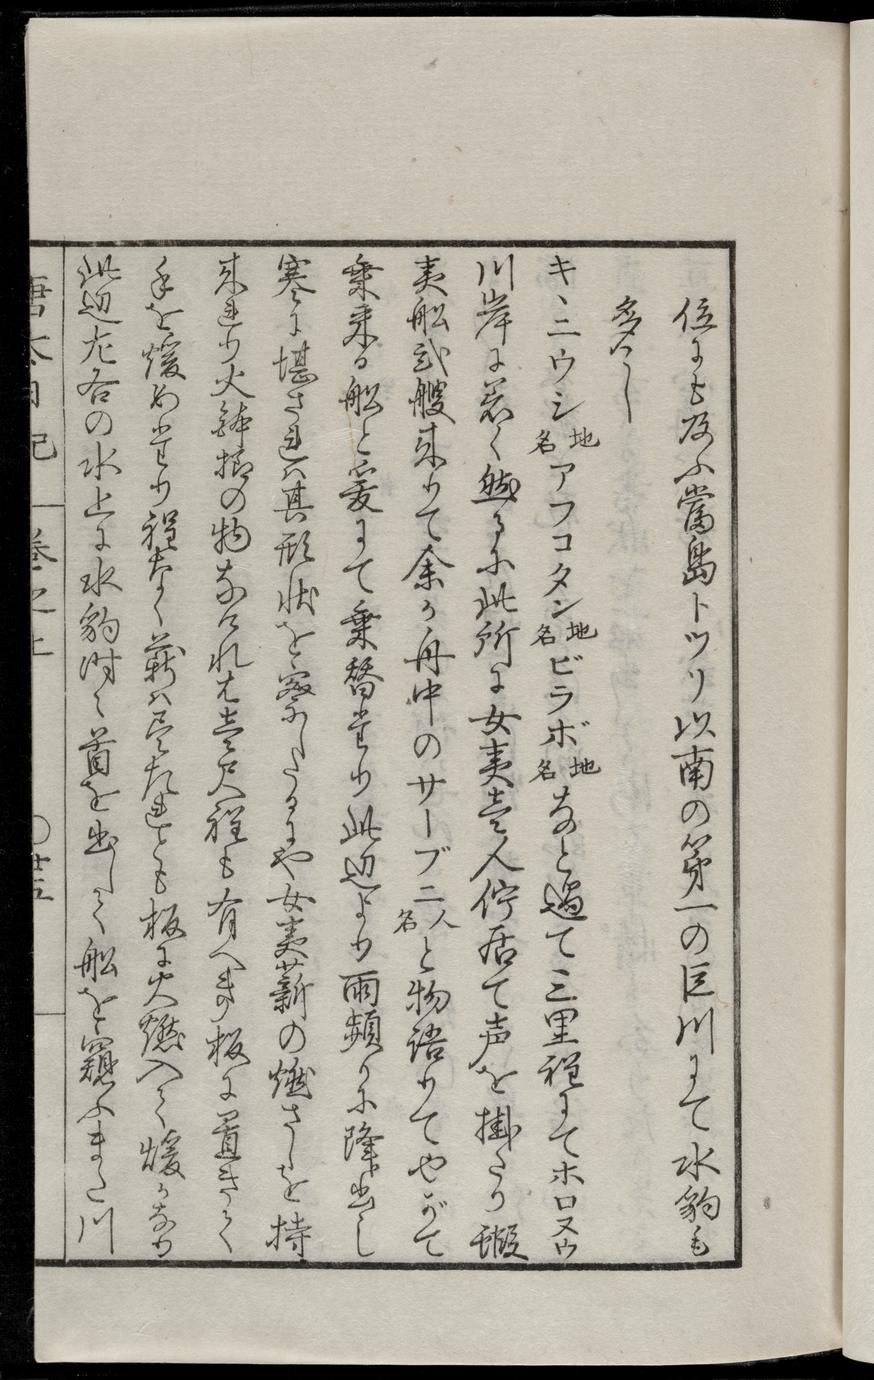 位にも及ふ當島トツソ以南の第一の巨川にて水豹も
多し
キヽニウシ地名アフコタン地名ビラボ地名など過て三里程にてホロヌウ
川岸に着く然るに此所に女夷壱人佇居て声を掛たり
夷船弐艘来りて余か舟中のサーブニ人名と物語りてやがて
乗来る船と爰にて乗替たり此辺より雨頻りに降出し
寒に堪されは其形状を察したるにや女夷薪の燃さしを持
来り火鉢様の物なけれは壱尺程も有へき板に置きて
手を煖めたり程なく薪は尽たれとも板に火燃入て煖かなり
此辺左右の水上に水豹時々首を出して船を窺ふまた川
唐太日記 巻之上 ○廿五